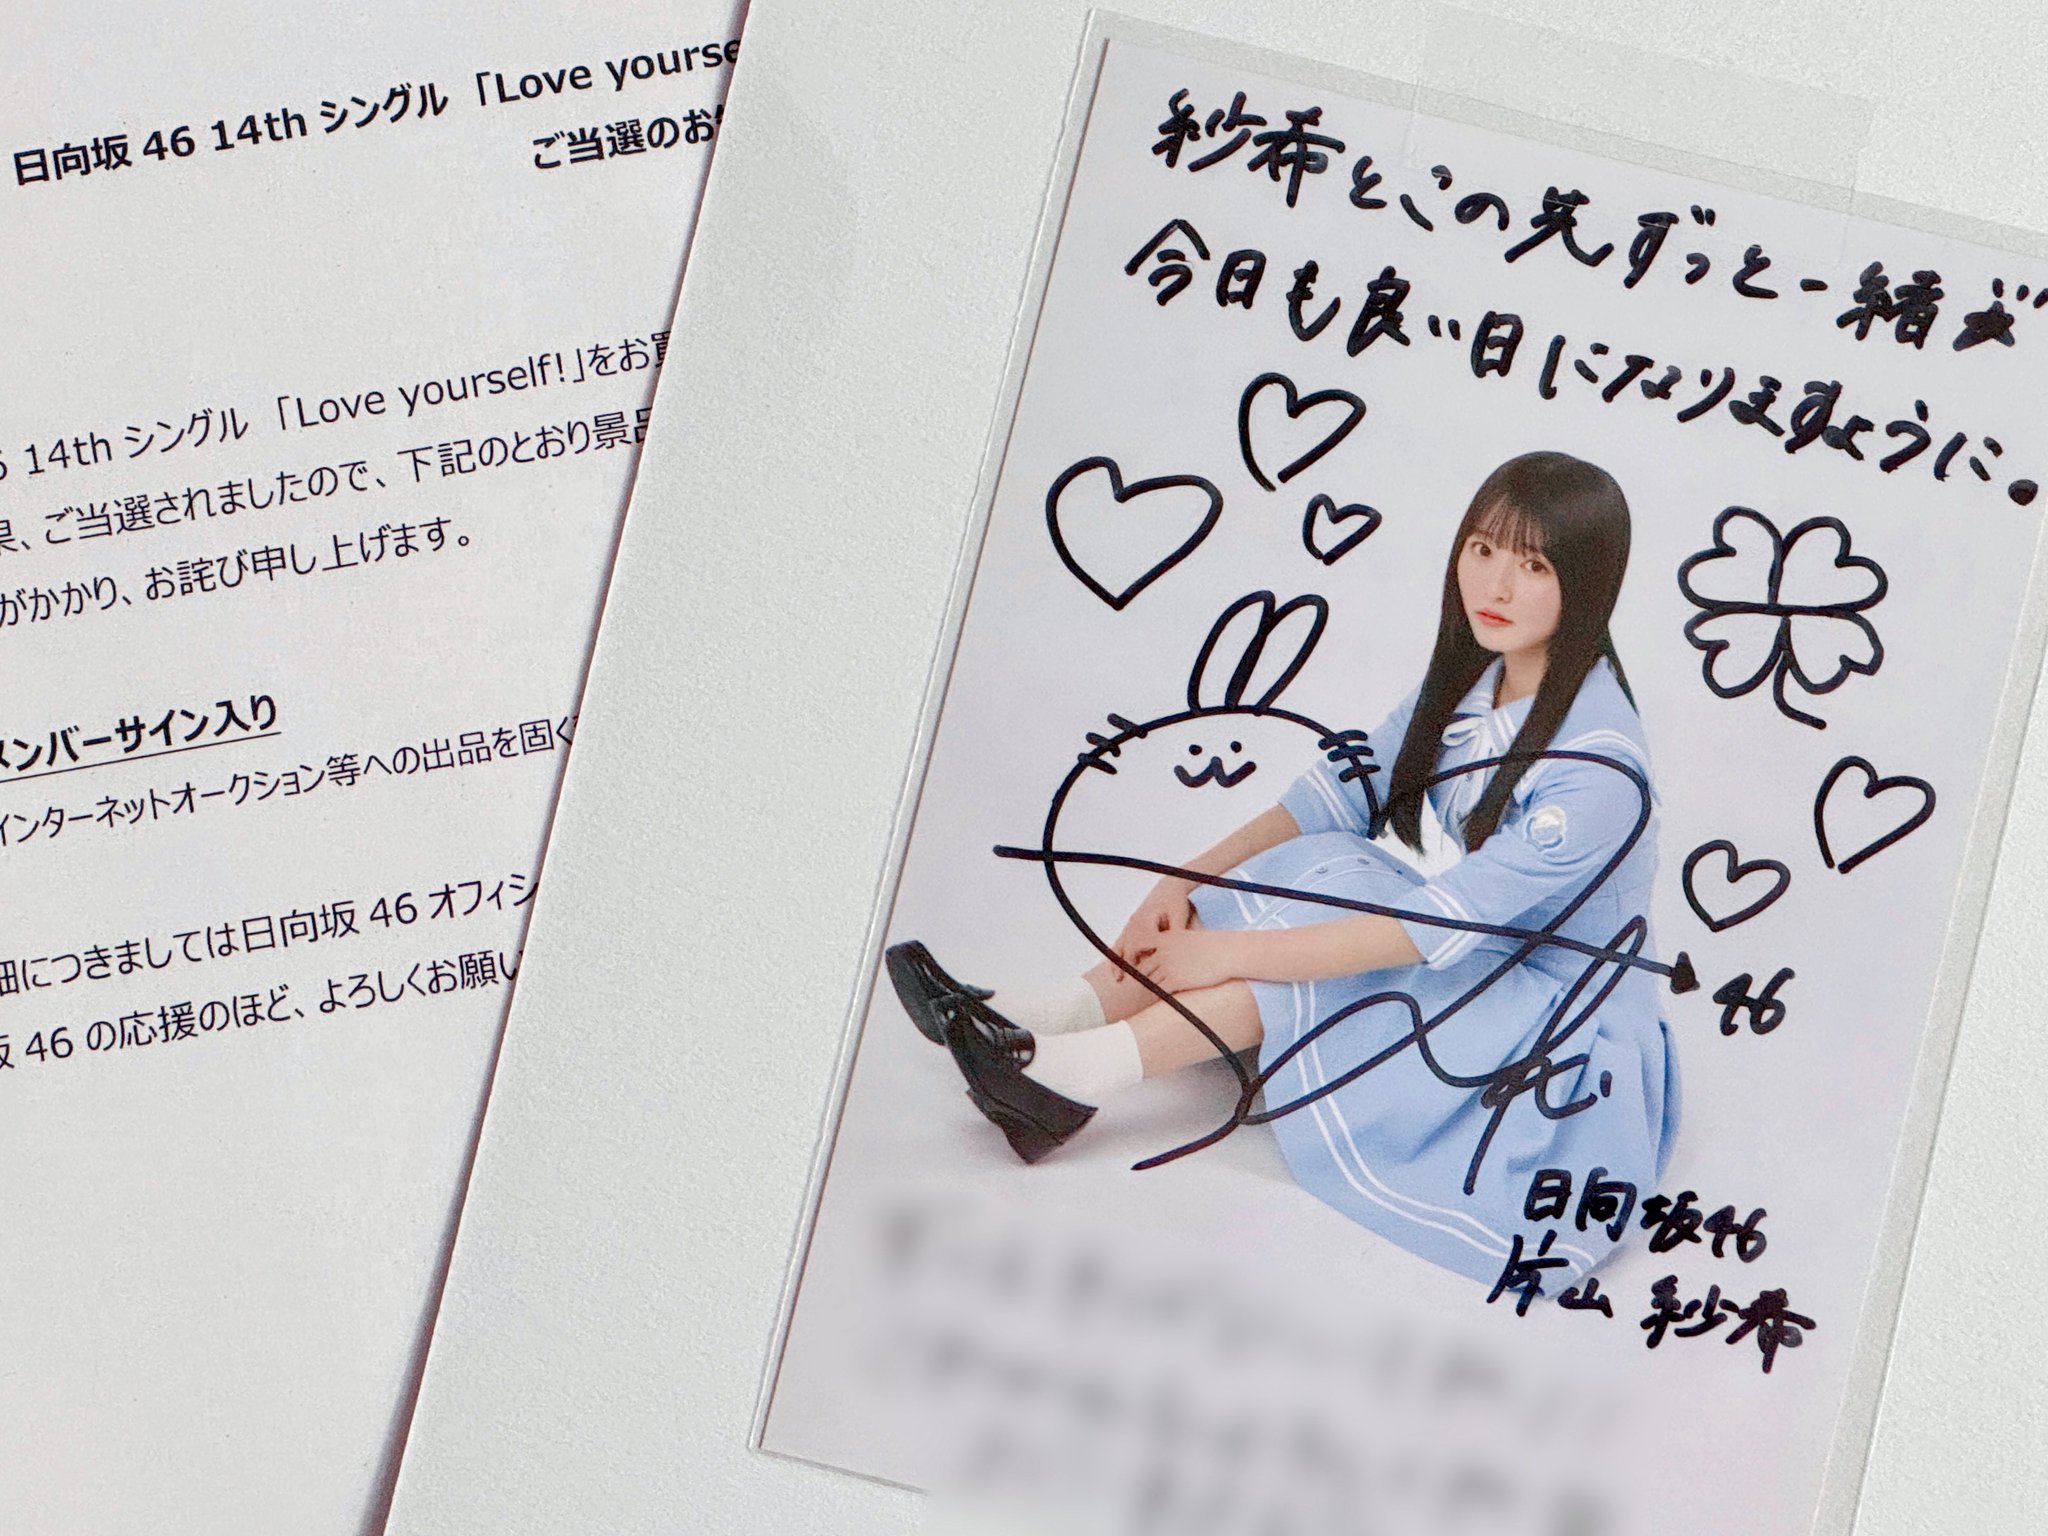 日向坂 46 14th シングル 「Love yourse
ご当選のお
14th シングル 「Love yourself!」をお買
、ご当選されましたので、下記のとおり景品
がかかり、お詫び申し上げます。
メンバーサイン入り
インターネットオークション等への出品を固く
細につきましては日向坂 46 オフィシ
坂 46 の応援のほど、よろしくお願い
紗希とこの先ずっと一緒
今日も良い日になりますように。
46
日向坂46
片山 紗希